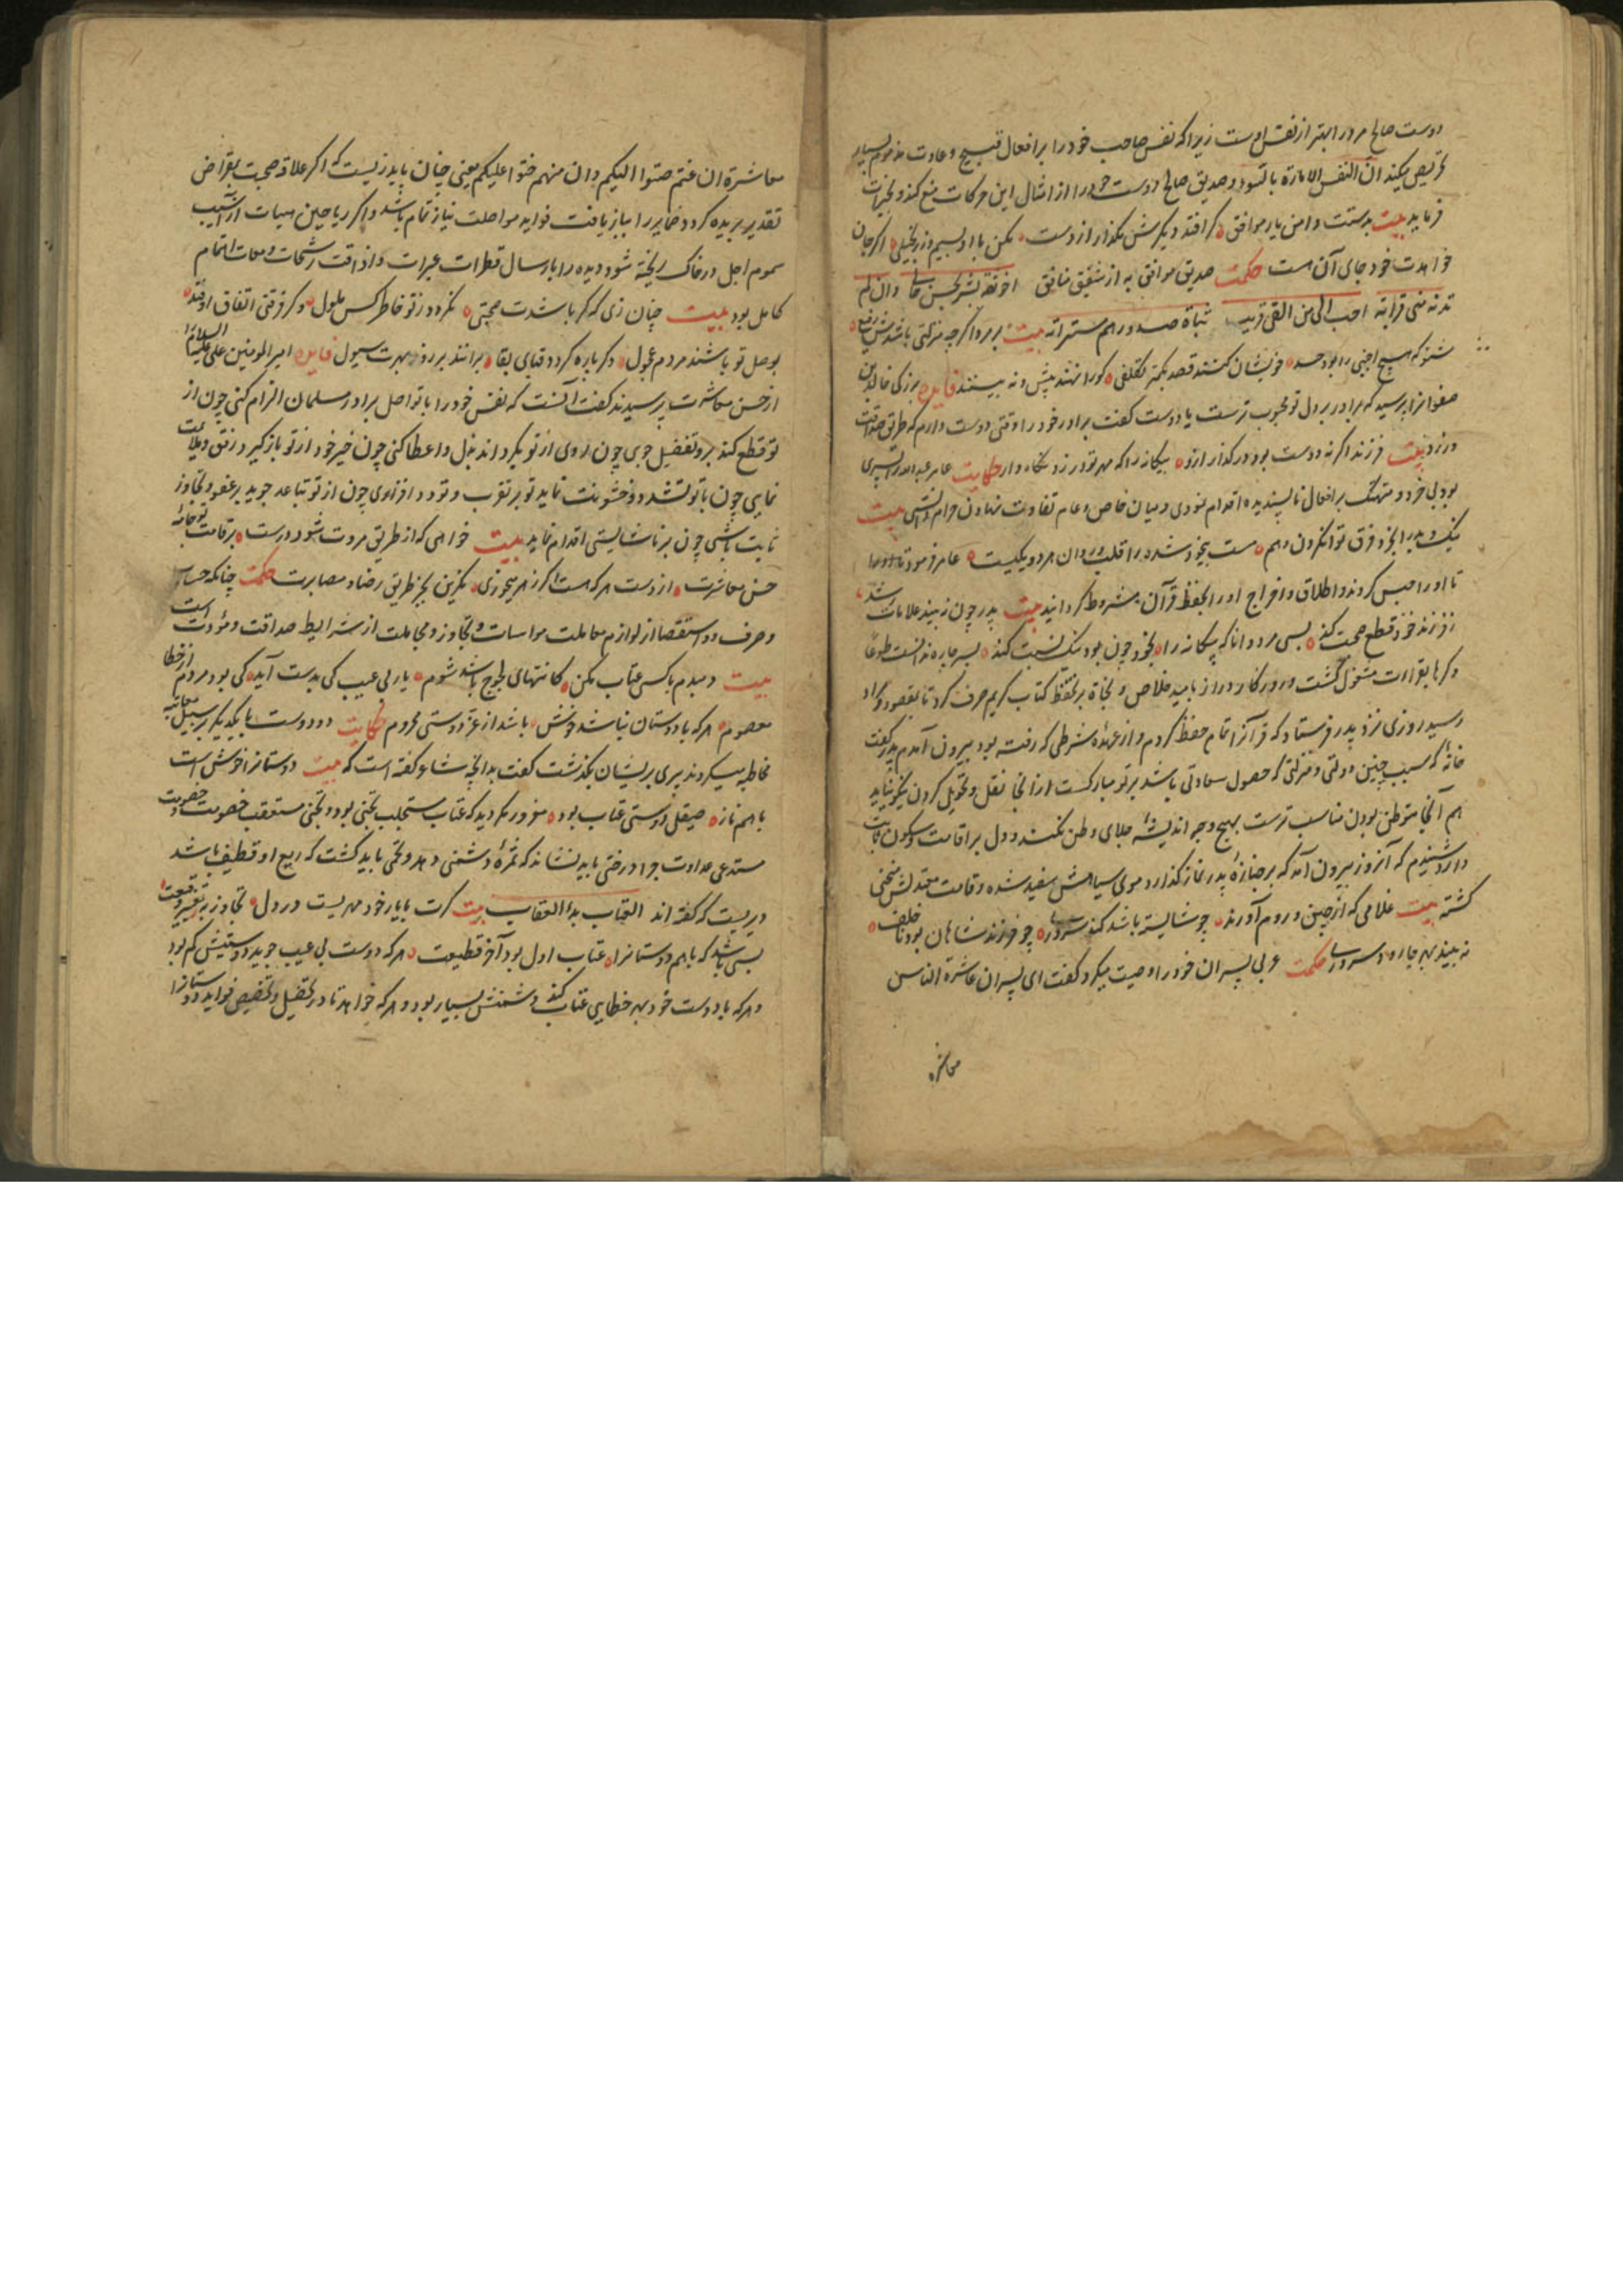 دوست صالح مرد را بهتر از نفس اوست زیرا که نفس صاحب خود را بر افعال قبیح و عادت مذموم بسیار
تحریص میکند ان النفس لامارة بالسوء و صدیق صالح دوست خود را از امثال این حرکات منع کند و بخیرات
فرماید بیت بدستت دامن یار موافق کر افتد دیکرش مکذار از دست مکن با او بسیم و زر بخیلی اکر جان
خواهدت خود جای آن هست حکمت صدیق موافق به از شقیق منافق اخو ثقة یسر بحسن حالی وان لم
تدنه منی قرابة احب الی من الفی قریب تباة صدورهم مسترابه بیت
شنو که هیچ اجنبی را بود حسد خویشان کنند قصد بکتر تکلفی کور انهند پیش و نه بینند فایده بزرکی خالد بن
صفوانرا پرسید که برادر بر دل تو محبوب ترست یا دوست کفت برادر خود را وقتی دوست دارم که طریق صداقت
ورزد بیت فرزند اکر نه دوست بود درکذار ازو بیکانه را که مهر تو ورزد نکاه دار حکایت عامر عبدالله را پسری
بود بی خرد و متهتک بر افعال ناپسندیده اقدام نمودی و میان خاص و عام تفاوت ننهادن حرام دانستی بیت
نیک و بد را بخرد فرق توان کردن و هم مست بیخود شده را قلب و روان هر دو یکیست عامر فرمود تا
تا او را حبس کردند و اطلاق و اخراج او را بحفظ قرآن مشروط کردانید بیت پدر چون نه بیند علامات رشد
ز فرزند خود قطع صحبت کند بسی مرد دانا که بیکانه را بخود چون بود نیک نسبت کند پسر چاره ندانست طوعاً
و کرها بقراءت مشغول کشت و روزکار دراز بامید خلاص و نجاة بر تحفظ کتاب کریم صرف کرد تا بمقصود و مراد
رسید روزی نزد پدر فرستاد که قرآنرا تمام حفظ کردم و از عهدهٔ شرطی که رفته بود بیرون آمدم پدر کفت
خانهٔ که سبب چنین دولتی و منزلتی که حصول سعادتی باشد بر تو مبارکست از آنجا نقل و تحویل کردن نیکو نباید
هم آنجا متوطن بودن مناسب ترست بهیچ وجه اندیشهٔ جلای وطن نکند و دل بر اقامت و سکون ثابت
دارد شنیدم که آنروز بیرون آمد که بر جنازهٔ پدر نماز کذارد موی سیاهش سفید شده و قامت معتدلش منحنی
کشته بیت غلامی که از چین و روم آورند چو شایسته باشد کند سروری چو فرزند شاهان بود ناخلف
نه بیند بهر چاره سروری حکمت عربی پسران خود را وصیت میکرد کفت ای پسران عاشرة الناس
معاشرة
معاشرة ان غبتم حنوا الیکم و ان متم حنوا علیکم یعنی چنان باید زیست که اکر علاقهٔ صحبت بمقراض
تقدیر بریده کردد ضمایر را بباز یافت فواید مواصلت نیاز تمام باشد و اکر ریاحین حیات از آسیب
سموم اجل در خاک ریخته شود دیده را بارسال قطرات عبرات و اذاقت رشحات دمعات اهتمام
کامل بود بیت چنان زی که کر باشدت صحبتی نکردد ز تو خاطر کس ملول و کر فرقتی اتفاق اوفتد
بوصل تو باشند مردم عجول دکر باره کردد قبای بقا برانند بر روز بهرت سیول فایده امیر المومنین علی علیه السلام را
از حسن معاشرت پرسیدند کفت آنست که نفس خود را با تواصل برادر مسلمان الزام کنی چون از
تو قطع کند بر و تفضل جوی چون روی از تو بکرداند بذل و اعطا کنی چون خیر خود از تو باز کیرد رفق و ملائمت
نمایی چون با تو تشدد و خشونت نماید تو بر تقرب و تودد افزاوی چون از تو تباعد جوید بر عفو و تجاوز
ثابت باشی چون بر ناشایستی اقدام نماید بیت خواهی که از طریق مروت شود درست بر قامت تو جامهٔ
حسن معاشرت از دست هر که هست اکر زهر میخوری مکزین بجز طریق رضا و مصابرت حکمت چنانکه حساب
و صرف و استقصا از لوازم معاملت مواسات و تجاوز و مجاملت از شرایط صداقت و مودت است
بیت دمبدم با کسی عتاب مکن کانتهای لجوج باشد شوم یار بی عیب کی بدست آید کی بود مردم از خطا
معصوم هر که با دوستان نباشد خوش باشد از عز دوستی محروم حکایت دو دوست با یکدیکر بر سبیل معاتبه
مخاطبه میکردند پیری بریشان بکذشت کفت بدانچه شاعر کفته است که بیت دوستانرا خوش است
با هم ناز صیقل دوستی عتاب بود مغرور مکردید که عتاب مستجلب تجنی بود و تجنی مستعقب خصومت و خصومت
مستدعی عداوت چرا درختی باید نشاند که ثمرهٔ دشمنی دهد و تخمی باید کشت که ریع او قطیعت باشد
دیریست که کفته اند العتاب بدء العقاب بیت کرت با یار خود مهریست در دل تجاوز به ز تعییر و وقیعت
بسی باشد که با هم دوستانرا عتاب اول بود آخر قطیعت هر که دوست بی عیب جوید دوستیش کم بود
و هر که با دوست خود بهر خطایی عتاب کند دشمنش بسیار بود و هر که خواهد تا در تحصیل و تخصیص فواید دوستانرا